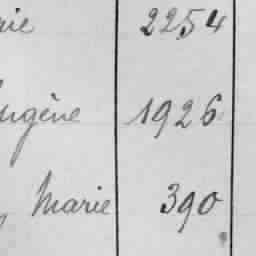 rie 2254
Eugène 1926
, Marie 390